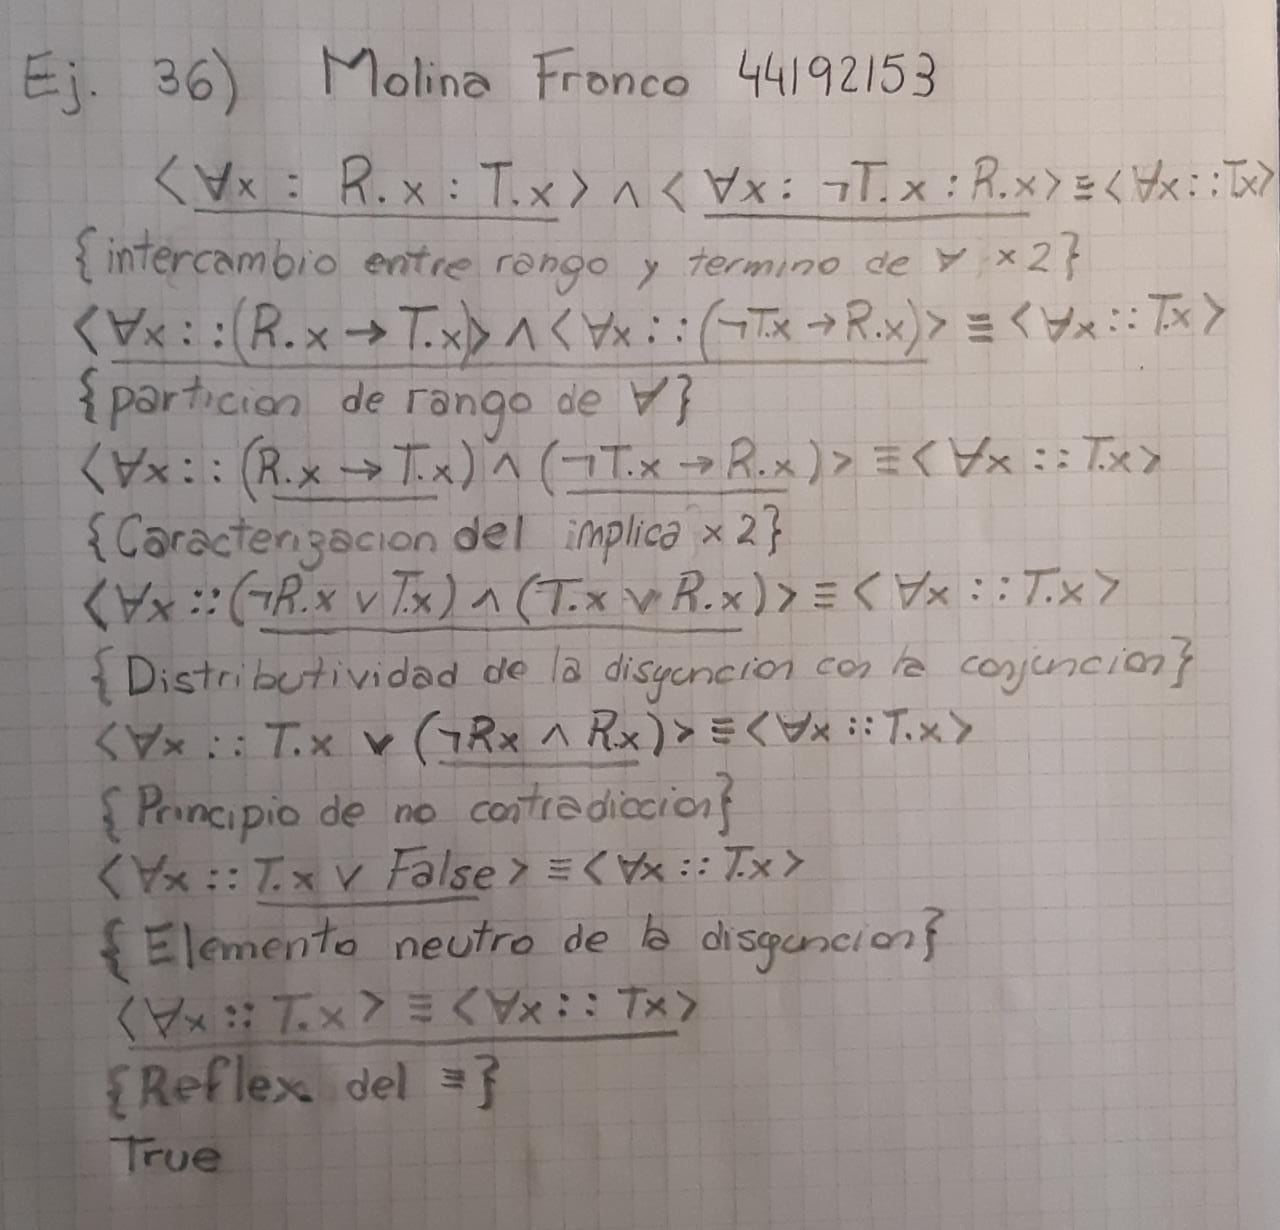 Ej. 36) Molina Franco 44192153
<∀x : R.x : T.x> ∧ <∀x : ¬T.x : R.x> ≡ <∀x :: Tx>
{intercambio entre rango y termino de ∀ x2}
<∀x :: (R.x → T.x)> ∧ <∀x :: (¬T.x → R.x)> ≡ <∀x :: T.x>
{particion de rango de ∀}
<∀x :: (R.x → T.x) ∧ (¬T.x → R.x)> ≡ <∀x :: T.x>
{Caracterizacion del implica x2}
<∀x :: (¬R.x ∨ T.x) ∧ (T.x ∨ R.x)> ≡ <∀x :: T.x>
{Distributividad de la disyuncion con la conjuncion}
<∀x :: T.x ∨ (¬Rx ∧ R.x)> ≡ <∀x :: T.x>
{Principio de no contradiccion}
<∀x :: T.x ∨ False> ≡ <∀x :: T.x>
{Elemento neutro de la disyuncion}
<∀x :: T.x> ≡ <∀x :: Tx>
{Reflex. del ≡}
True